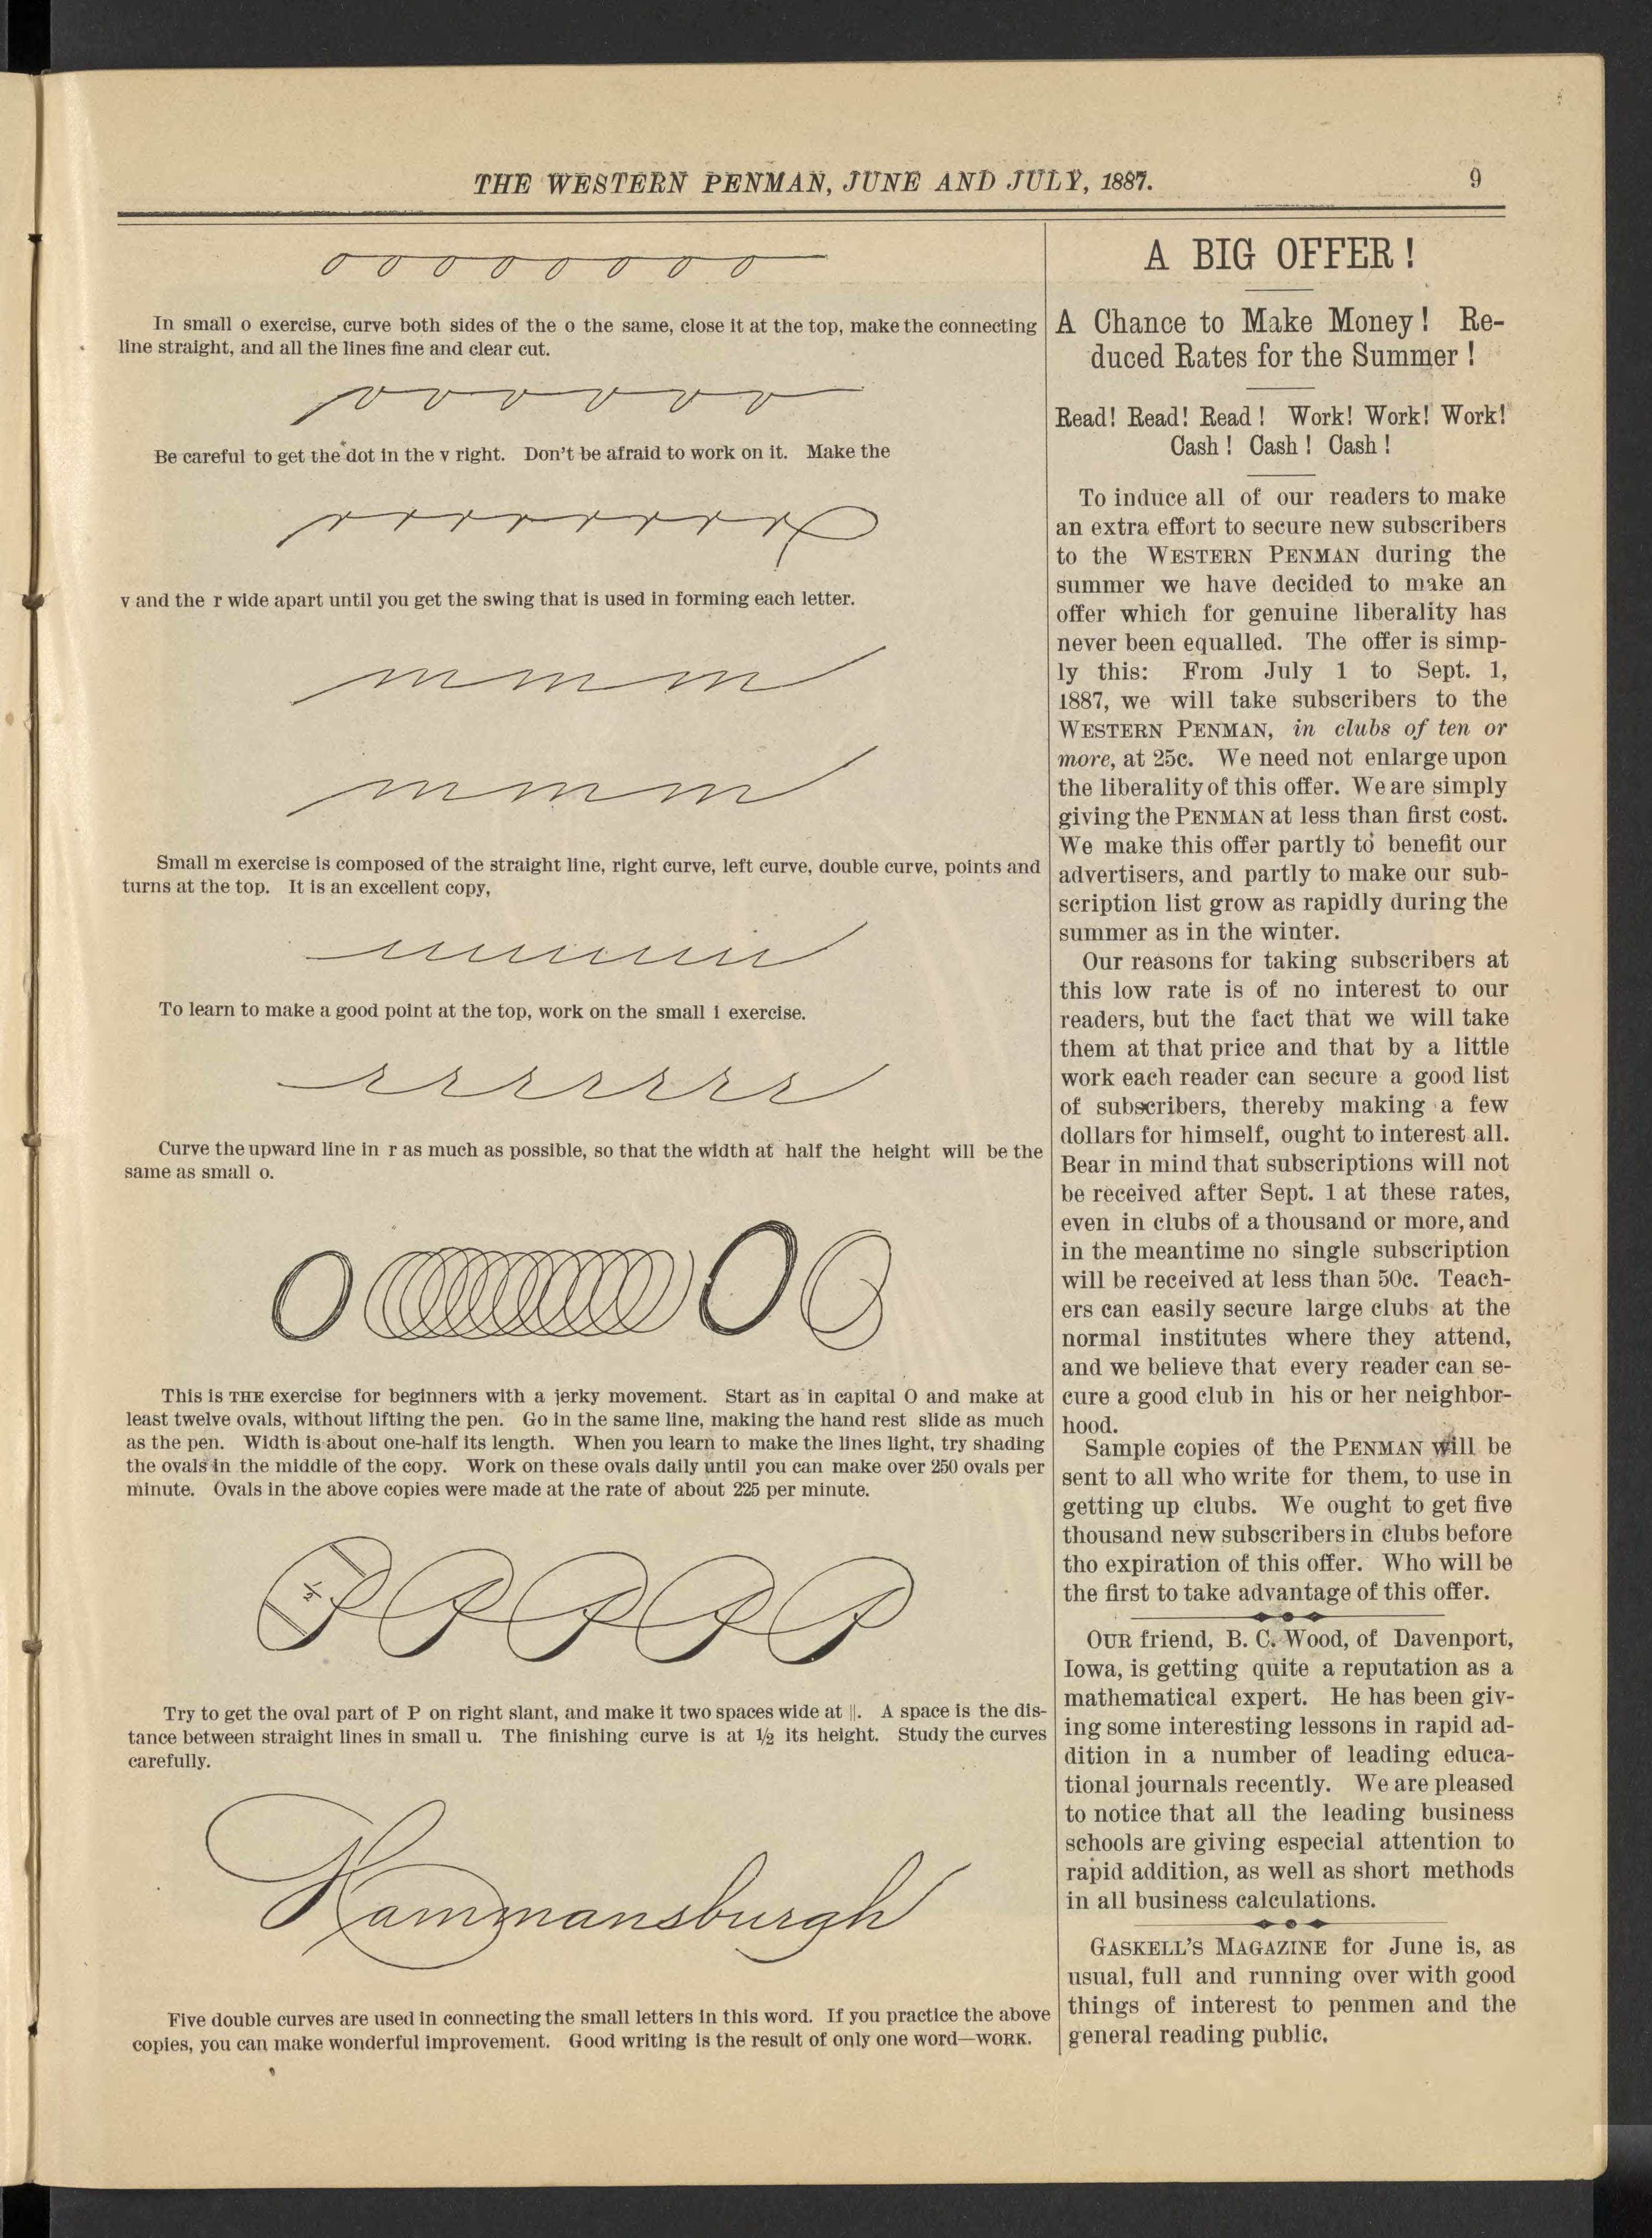 THE WESTERN PENMAN, JUNE AND JULY, 1887.
9
o o o o o o o o
In small o exercise, curve both sides of the o the same, close it at the top, make the connecting
line straight, and all the lines fine and clear cut.
v v v v v v
Be careful to get the dot in the v right. Don't be afraid to work on it. Make the
v and the r wide apart until you get the swing that is used in forming each letter.
m m m
m m m
Small m exercise is composed of the straight line, right curve, left curve, double curve, points and
turns at the top. It is an excellent copy,
To learn to make a good point at the top, work on the small i exercise.
r r r r r r r
Curve the upward line in r as much as possible, so that the width at half the height will be the
same as small o.
This is THE exercise for beginners with a jerky movement. Start as in capital O and make at
least twelve ovals, without lifting the pen. Go in the same line, making the hand rest slide as much
as the pen. Width is about one-half its length. When you learn to make the lines light, try shading
the ovals in the middle of the copy. Work on these ovals daily until you can make over 250 ovals per
minute. Ovals in the above copies were made at the rate of about 225 per minute.
½
P P P P P
Try to get the oval part of P on right slant, and make it two spaces wide at ||. A space is the dis-
tance between straight lines in small u. The finishing curve is at ½ its height. Study the curves
carefully.
Hammansburgh
Five double curves are used in connecting the small letters in this word. If you practice the above
copies, you can make wonderful improvement. Good writing is the result of only one word—WORK.
A BIG OFFER!
A Chance to Make Money! Re-
duced Rates for the Summer!
Read! Read! Read! Work! Work! Work!
Cash! Cash! Cash!
To induce all of our readers to make
an extra effort to secure new subscribers
to the WESTERN PENMAN during the
summer we have decided to make an
offer which for genuine liberality has
never been equalled. The offer is simp-
ly this: From July 1 to Sept. 1,
1887, we will take subscribers to the
WESTERN PENMAN, in clubs of ten or
more, at 25c. We need not enlarge upon
the liberality of this offer. We are simply
giving the PENMAN at less than first cost.
We make this offer partly to benefit our
advertisers, and partly to make our sub-
scription list grow as rapidly during the
summer as in the winter.
Our reasons for taking subscribers at
this low rate is of no interest to our
readers, but the fact that we will take
them at that price and that by a little
work each reader can secure a good list
of subscribers, thereby making a few
dollars for himself, ought to interest all.
Bear in mind that subscriptions will not
be received after Sept. 1 at these rates,
even in clubs of a thousand or more, and
in the meantime no single subscription
will be received at less than 50c. Teach-
ers can easily secure large clubs at the
normal institutes where they attend,
and we believe that every reader can se-
cure a good club in his or her neighbor-
hood.
Sample copies of the PENMAN will be
sent to all who write for them, to use in
getting up clubs. We ought to get five
thousand new subscribers in clubs before
tho expiration of this offer. Who will be
the first to take advantage of this offer.
OUR friend, B. C. Wood, of Davenport,
Iowa, is getting quite a reputation as a
mathematical expert. He has been giv-
ing some interesting lessons in rapid ad-
dition in a number of leading educa-
tional journals recently. We are pleased
to notice that all the leading business
schools are giving especial attention to
rapid addition, as well as short methods
in all business calculations.
GASKELL'S MAGAZINE for June is, as
usual, full and running over with good
things of interest to penmen and the
general reading public.